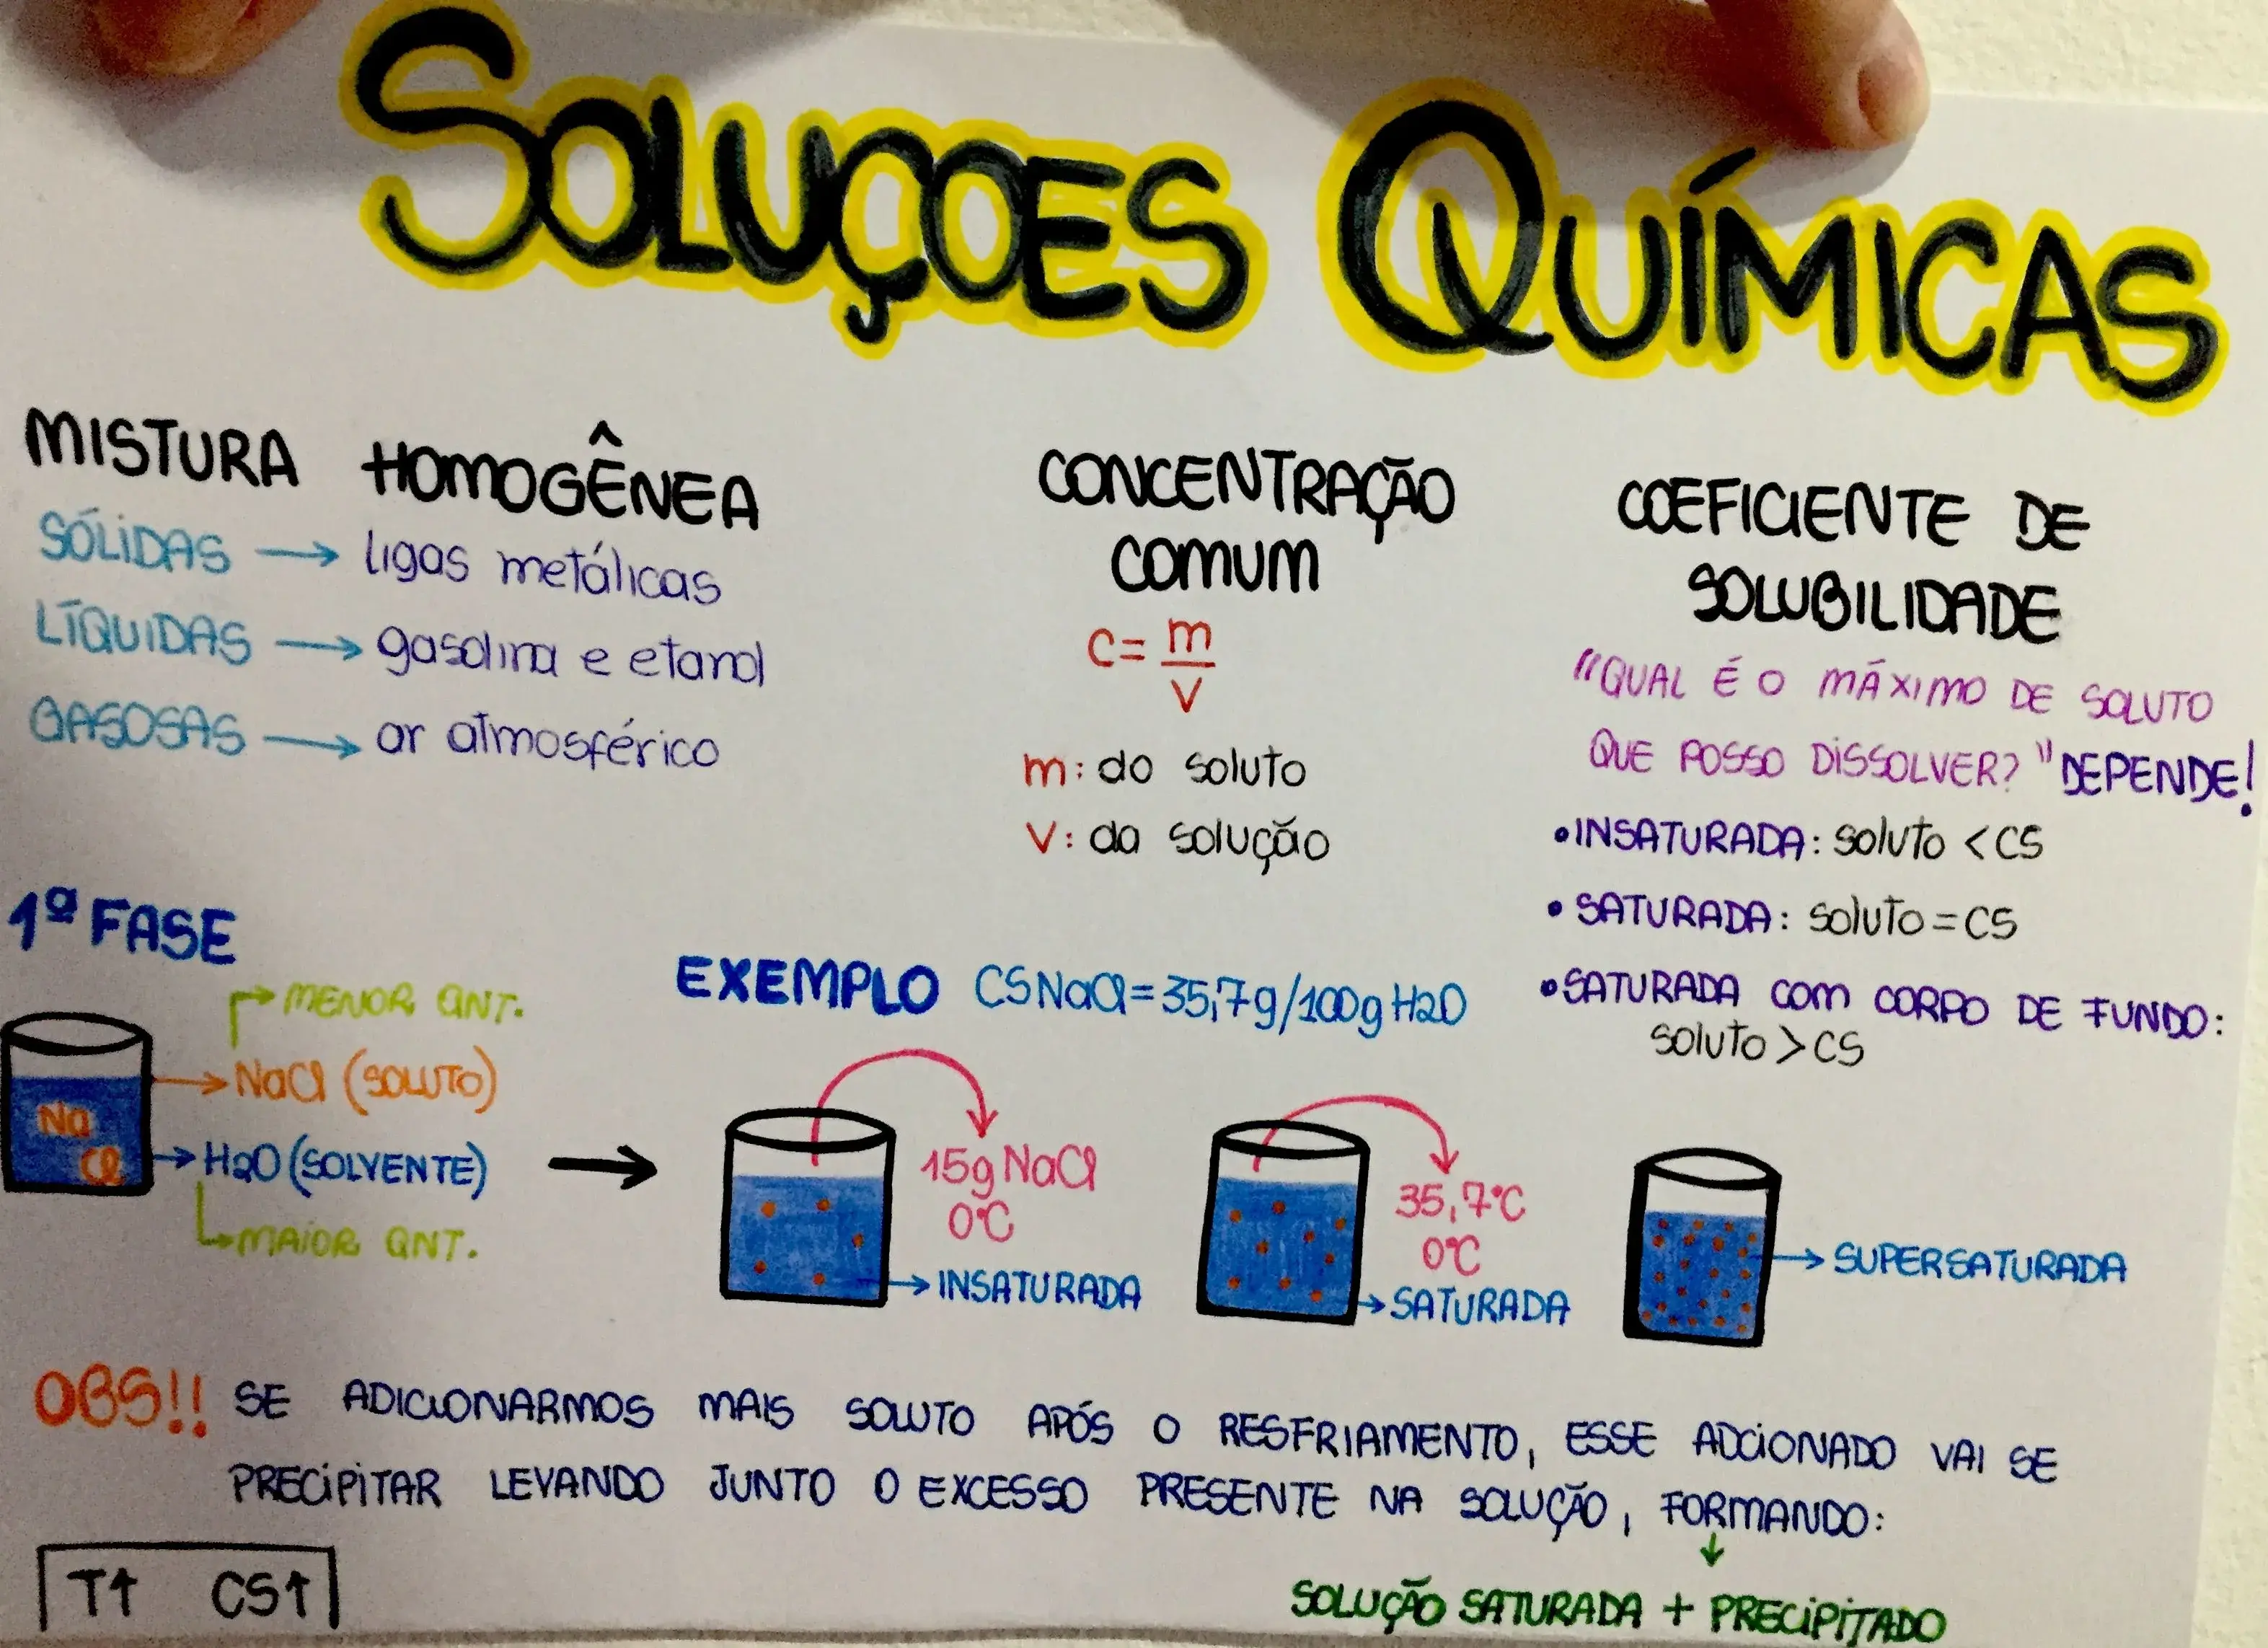 SOLUÇOES QUÍMICAS
MISTURA HOMOGÊNEA
SÓLIDAS → ligas metálicas
LÍQUIDAS → gasolina e etanol
GASOSAS → ar atmosférico
CONCENTRAÇÃO
COMUM
C = m
V
m: do soluto
V: da solução
COEFICIENTE DE
SOLUBILIDADE
"QUAL É O MÁXIMO DE SOLUTO
QUE POSSO DISSOLVER?" DEPENDE!
• INSATURADA: soluto < CS
• SATURADA: soluto = CS
• SATURADA COM CORPO DE FUNDO:
soluto > CS
1ª FASE
MENOR QNT.
NaCl (SOLUTO)
Na
Cl
H2O (SOLVENTE)
MAIOR QNT.
EXEMPLO CS NaCl = 35,7g/100g H2O
15g NaCl
0°C
INSATURADA
35,7°C
0°C
SATURADA
SUPERSATURADA
OBS!! SE ADICIONARMOS MAIS SOLUTO APÓS O RESFRIAMENTO, ESSE ADCIONADO VAI SE
PRECIPITAR LEVANDO JUNTO O EXCESSO PRESENTE NA SOLUÇÃO, FORMANDO:
↓
SOLUÇÃO SATURADA + PRECIPITADO
T↑ CS↑